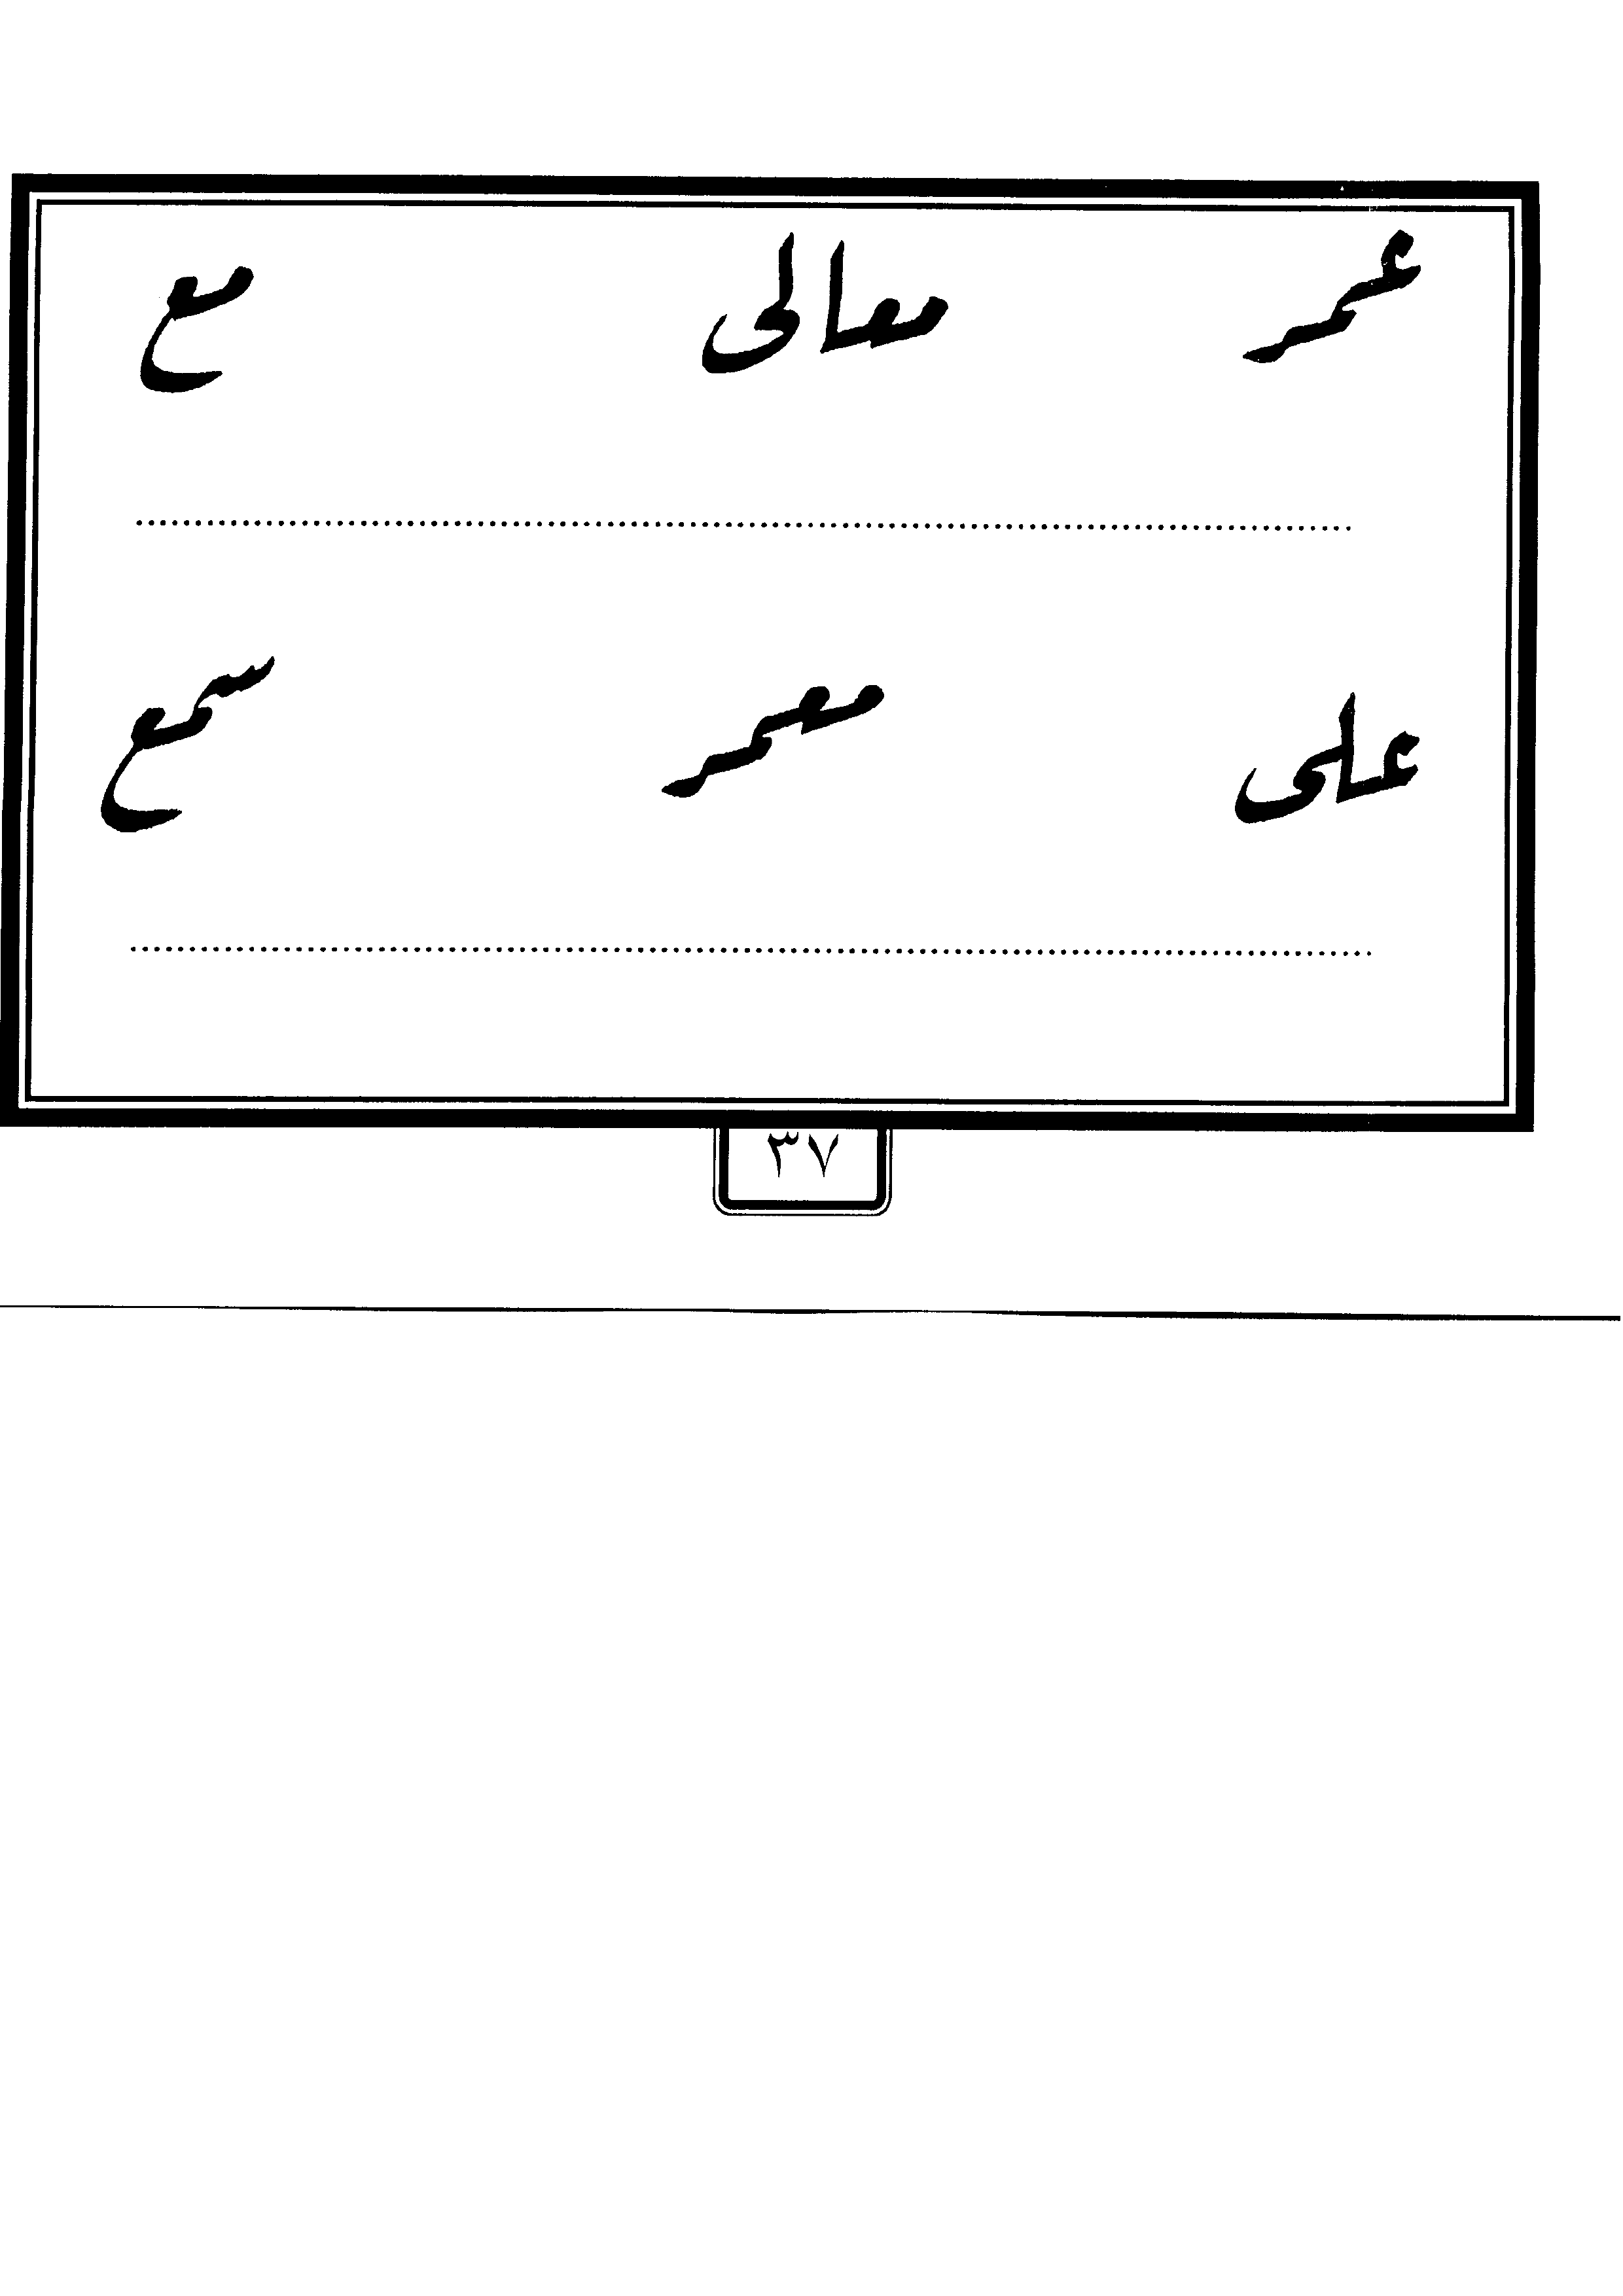 عمر معالى مع
على معمر سمع
٣٧